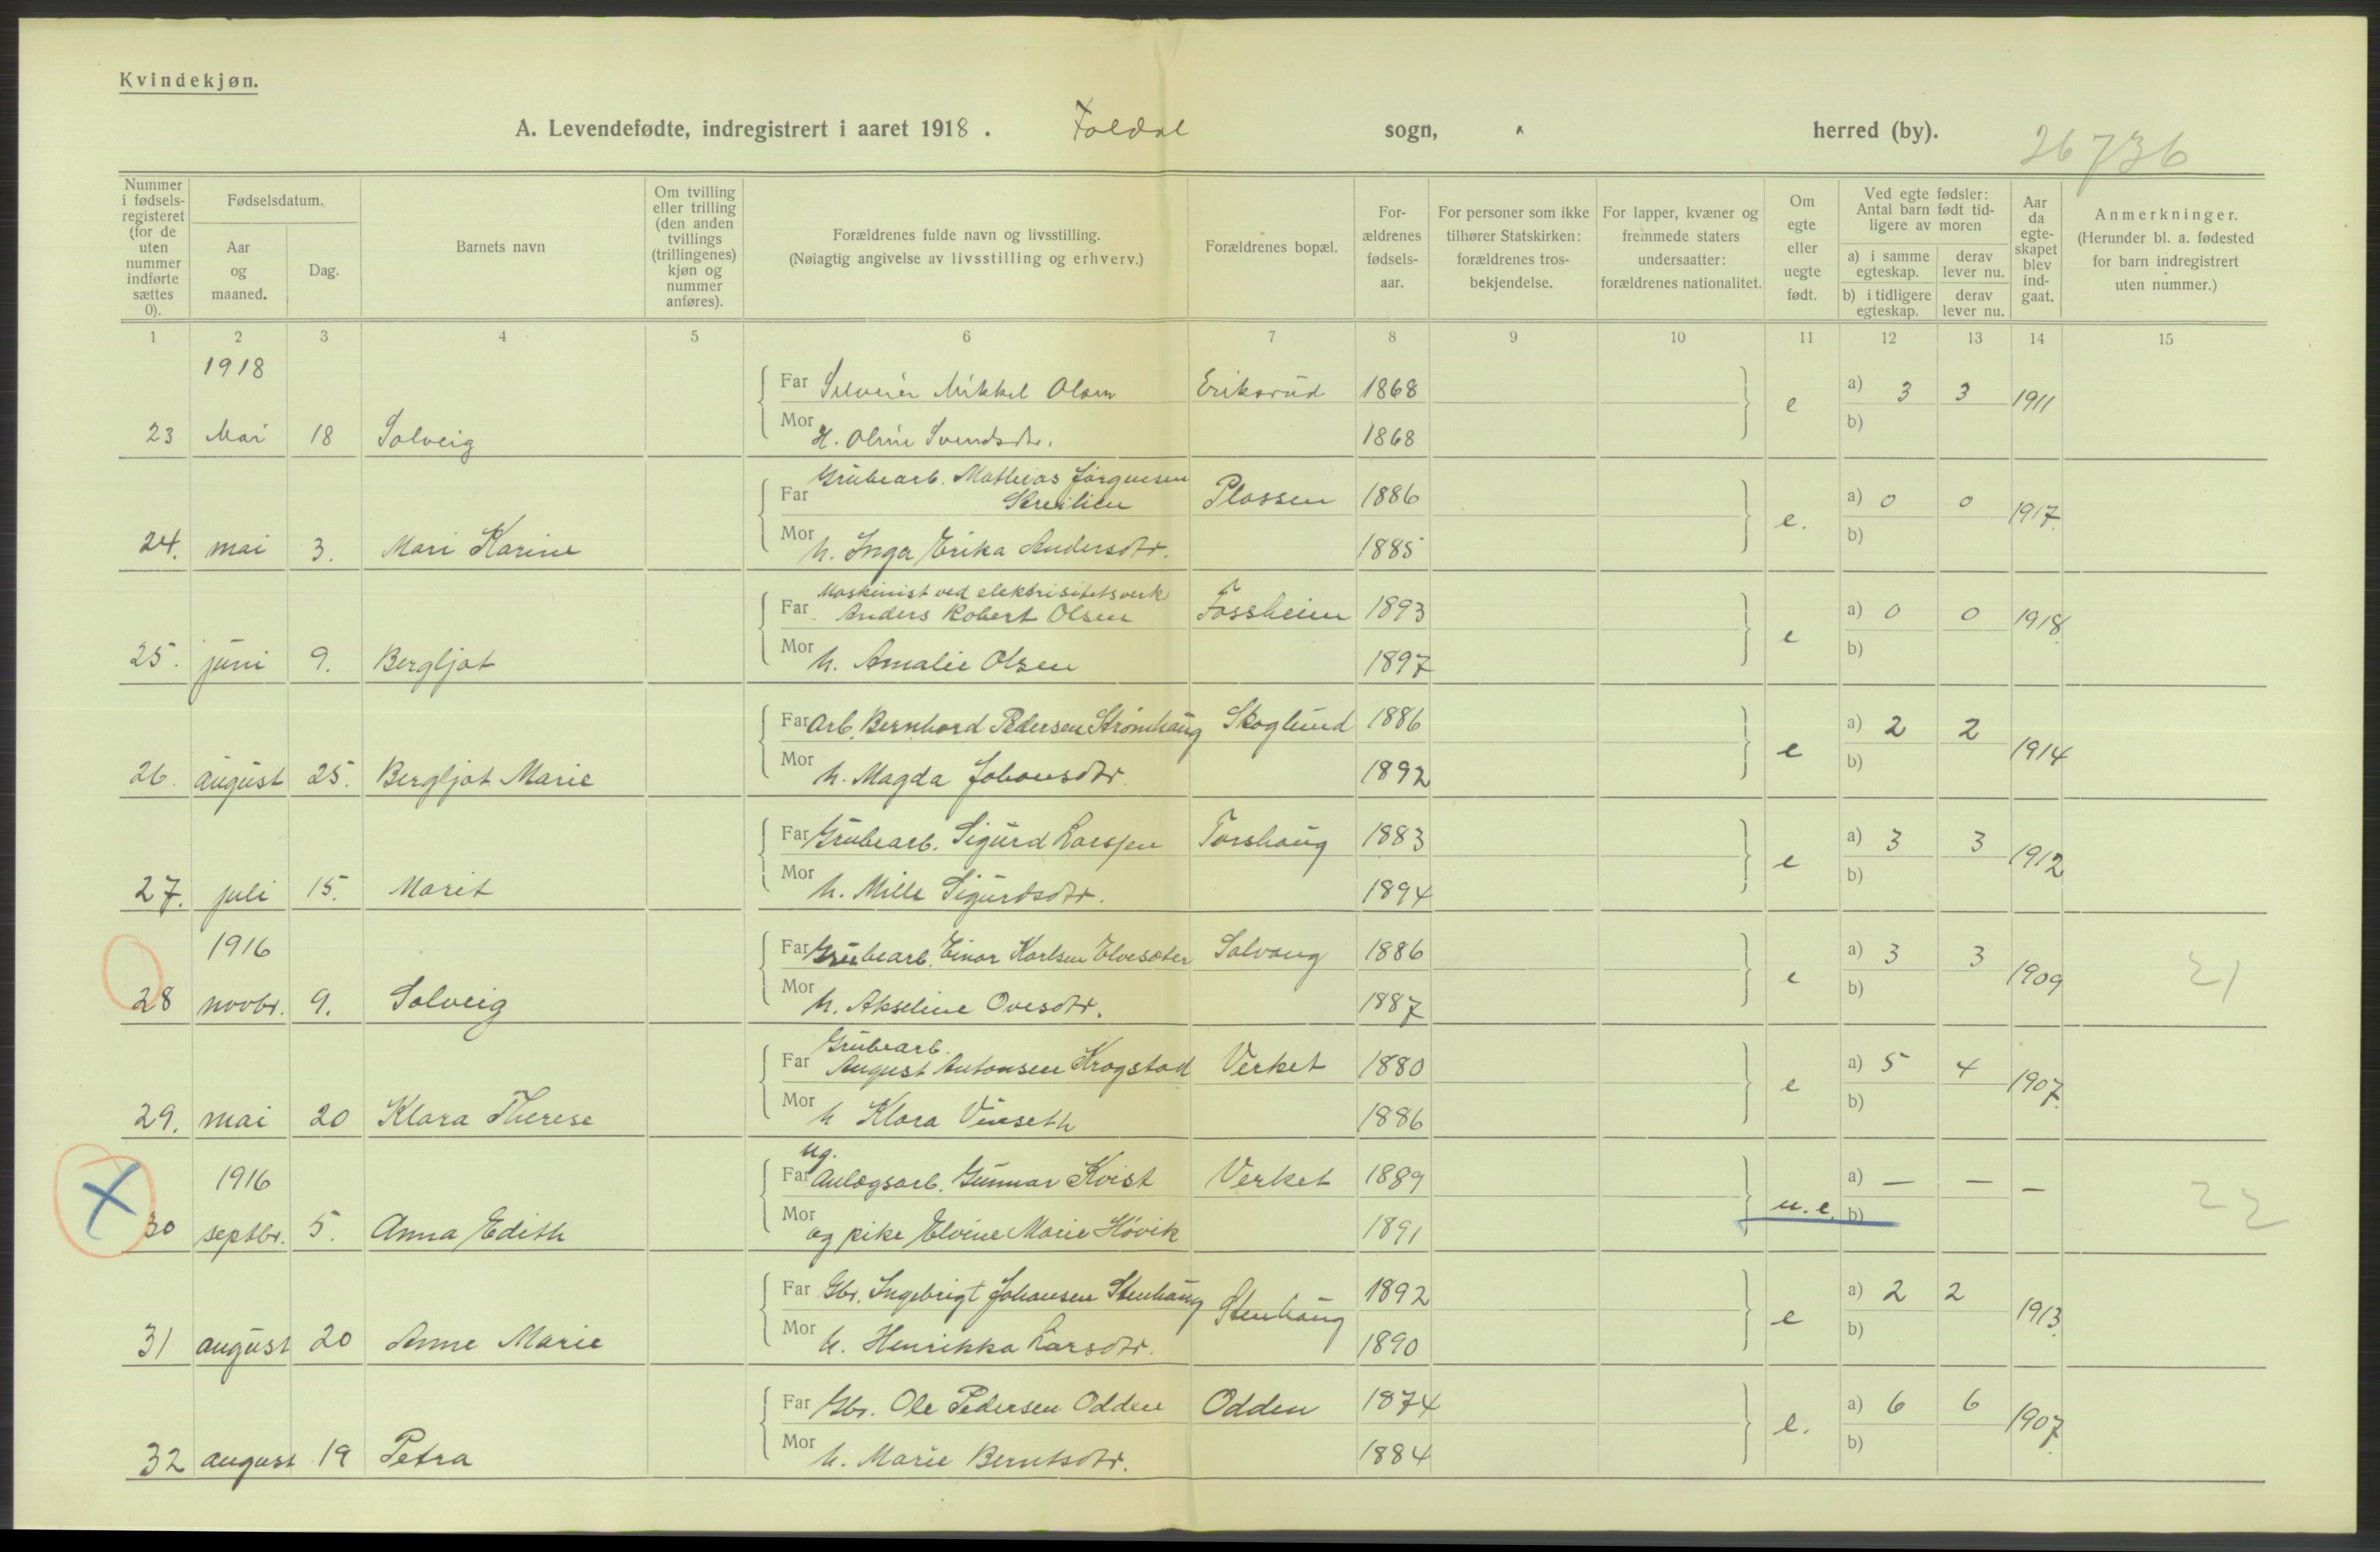 Kvindekjøn.
A. Levendefødte, indregistrert i aaret 1918. Foldal sogn, " herred (by).
26736
Nummer i fødsels-registeret (for de uten nummer indførte sættes 0).
Fødselsdatum.
Aar og maaned.
Dag.
Barnets navn
Om tvilling eller trilling (den anden tvillings (trillingenes) kjøn og nummer anføres).
Forældrenes fulde navn og livsstilling.
(Nøiagtig angivelse av livsstilling og erhverv.)
Forældrenes bopæl.
For-ældrenes fødsels-aar.
For personer som ikke tilhører Statskirken: forældrenes tros-bekjendelse.
For lapper, kvæner og fremmede staters undersaatter: forældrenes nationalitet.
Om egte eller uegte født.
Ved egte fødsler: Antal barn født tid-ligere av moren
a) i samme egteskap. derav lever nu.
b) i tidligere egteskap. derav lever nu.
Aar da egte-skapet blev ind-gaat.
Anmerkninger.
(Herunder bl. a. fødested for barn indregistrert uten nummer.)
1 2 3 4 5 6 7 8 9 10 11 12 13 14 15
1918
Far Mikkel Olsen Eriksrud 1868 e a) 3 3 1911
23 Mai 18 Solveig Mor H. Oline Svendsdtr. 1868 b)
Grubearb. Mathias Jørgensen
Far Streitlien Plassen 1886 e. a) 0 0 1917
24. mai 3. Mari Karine Mor h. Inga Erika Andersdtr. 1885 b)
Maskinist ved elektrisitetsverk
Far Anders Robert Olsen Fossheim 1893 e a) 0 0 1918
25. juni 9. Bergljot Mor h. Amalie Olsen 1897 b)
Far Arb. Bernhard Pedersen Strømhaug Skoglund 1886 e a) 2 2 1914
26. august 25. Bergljot Marie Mor h. Magda Johansdtr. 1892 b)
Far Grubearb. Sigurd Larssen Torshaug 1883 e a) 3 3 1912
27. juli 15. Marit Mor h. Mille Sigurdsdtr. 1894 b)
1916
Far Grubearb. Einar Karlsen Elvesæter Solvang 1886 e a) 3 3 1909 21
28 novbr. 9. Solveig Mor h. Akseline Ovesdtr. 1887 b)
Grubearb.
Far August Antonsen Krogstad Verket 1880 e a) 5 4 1907.
29. mai 20 Klara Therese Mor h Klara Vinseth 1886 b)
ug.
1916 Far Anlægsarb. Gunnar Kvist Verket 1889 u.e. a) — — — 22
30 septbr. 5. Anna Edith Mor og pike Elvine Marie Høvik 1891 b)
Far Gbr. Ingebrigt Johansen Stenhaug Stenhaug 1892 e a) 2 2 1913.
31 august 20 Anne Marie Mor h. Henrikka Larsdtr. 1890 b)
Far Gbr. Ole Pedersen Odden Odden 1874 e. a) 6 6 1907.
32 august 19 Petra Mor h. Marie Berntsdtr. 1884 b)